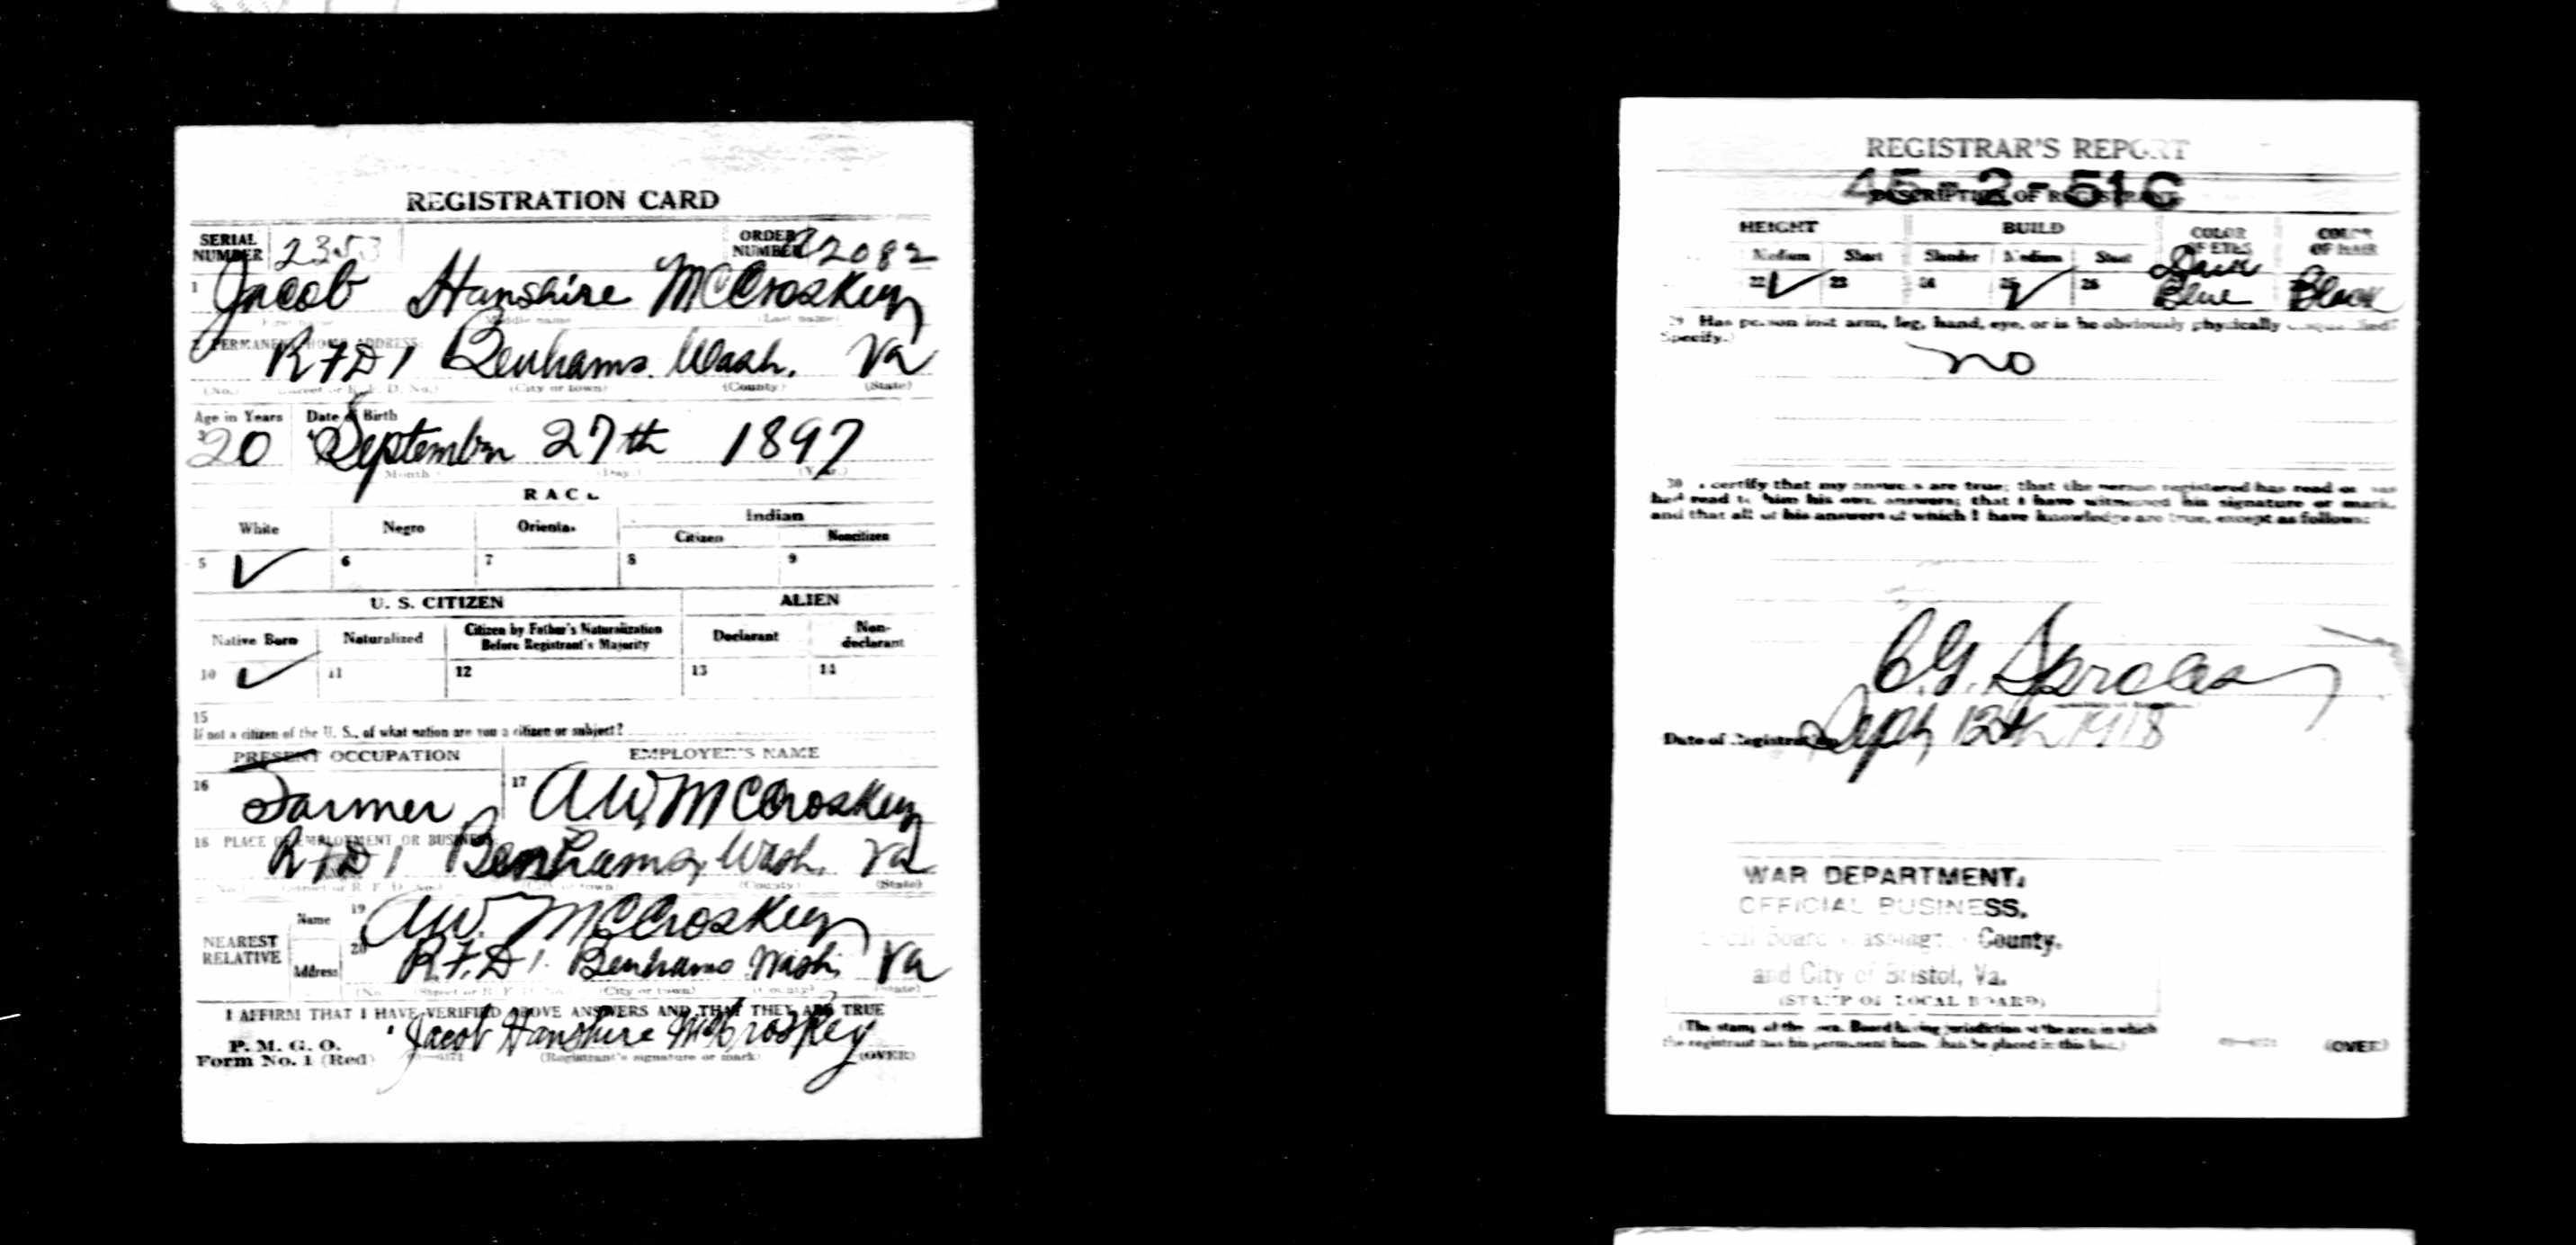 REGISTRATION CARD
SERIAL NUMBER 2353 ORDER NUMBER A2082
1 Jacob Hanshire McCroskey
(First name) (Middle name) (Last name)
2 PERMANENT HOME ADDRESS:
RFD 1 Benhams. Wash. Va
(No.) (Street or R. F. D. No.) (City or town) (County) (State)
Age in Years Date of Birth
3 20 September 27th 1897
(Month) (Day) (Year)
RACE
White Negro Oriental Indian
Citizen Noncitizen
5 ✓ 6 7 8 9
U. S. CITIZEN ALIEN
Native Born Naturalized Citizen by Father's Naturalization Before Registrant's Majority Declarant Non-declarant
10 ✓ 11 12 13 14
15
If not a citizen of the U. S., of what nation are you a citizen or subject?
PRESENT OCCUPATION EMPLOYER'S NAME
16 Farmer 17 A.W. McCroskey
18 PLACE OF EMPLOYMENT OR BUSINESS:
RFD 1 Benhams, Wash. Va
(No.) (Street or R. F. D. No.) (City or town) (County) (State)
NEAREST RELATIVE Name 19 A.W. McCroskey
Address 20 R.F.D 1. Benhams Wash. Va
(No.) (Street or R. F. D. No.) (City or town) (County) (State)
I AFFIRM THAT I HAVE VERIFIED ABOVE ANSWERS AND THAT THEY ARE TRUE
P. M. G. O.
Form No. 1 (Red) Jacob Hanshire McCroskey
(Registrant's signature or mark) (OVER)
REGISTRAR'S REPORT
45-2-51 C
DESCRIPTION OF REGISTRANT
HEIGHT BUILD COLOR OF EYES COLOR OF HAIR
Medium Short Slender Medium Stout
22 ✓ 23 24 25 ✓ 26 Dark Blue Black
29 Has person lost arm, leg, hand, eye, or is he obviously physically disqualified?
(Specify.)
no
30 I certify that my answers are true; that the person registered has read or has
had read to him his own answers; that I have witnessed his signature or mark,
and that all of his answers of which I have knowledge are true, except as follows:
Date of Registration Sept 12th 1918
WAR DEPARTMENT.
OFFICIAL BUSINESS.
Local Board Washington County.
and City of Bristol, Va.
(STAMP OF LOCAL BOARD)
(The stamp of the Local Board having jurisdiction of the area in which
the registrant has his permanent home shall be placed in this box.)
(OVER)